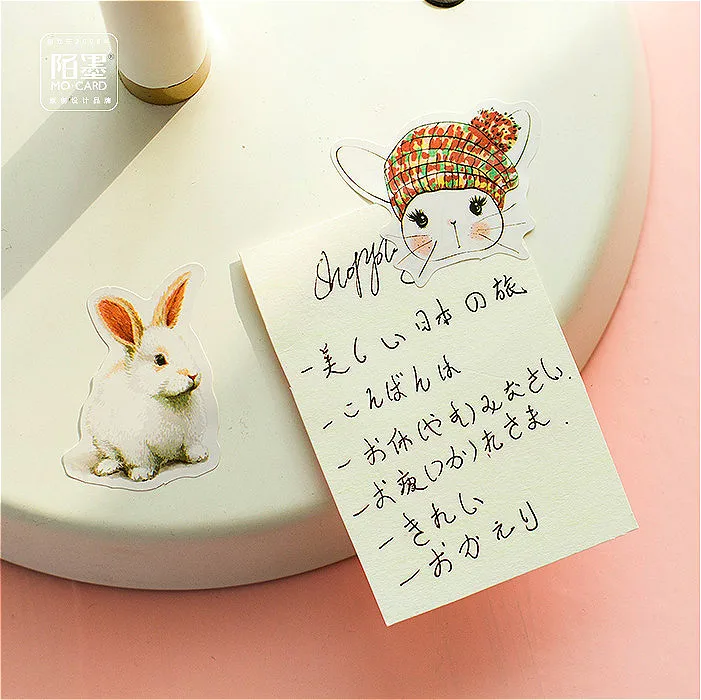 陌墨®
MO·CARD
原创设计品牌
Shopp
-美しい日本の旅
-こんばんは
-お休(やす)みなさい.
-お疲(つか)れさま.
-きれい
-おかえり